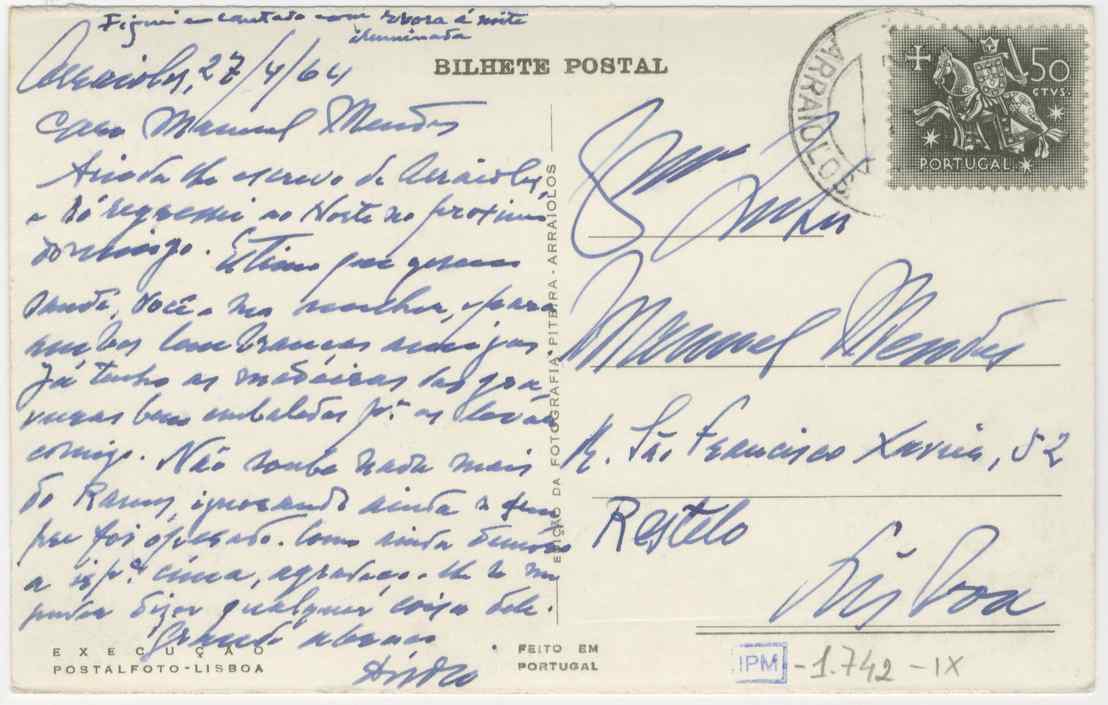 Fiquei encantado com Evora á noite
iluminada
Arraiolos, 27/4/64
BILHETE POSTAL
Caro Manuel Mendes
Ainda lhe escrevo de Arraiolos,
e só regressei ao Norte no proximo
domingo. Estimo que gozem
saude, Você e sua mulher, e para
ambos lembranças amigas
Já tenho as madeiras das gra-
vuras bem embaladas pª as levar
comigo. Não soube nada mais
do Ramos, ignorando ainda se
foi operado. Como ainda demoro
a ir pª cima, agradeço-lhe se me
puder dizer qualquer coisa dele.
Grande abraço
EXECUÇÃO
POSTALFOTO-LISBOA
EDIÇÃO DA FOTOGRAFIA PITEIRA - ARRAIOLOS
FEITO EM
PORTUGAL
ARRAIOLOS
50
CTVS.
PORTUGAL
Manuel Mendes
R. São Francisco Xavier, 52
Restelo
Lisboa
IPM -1.742 -IX